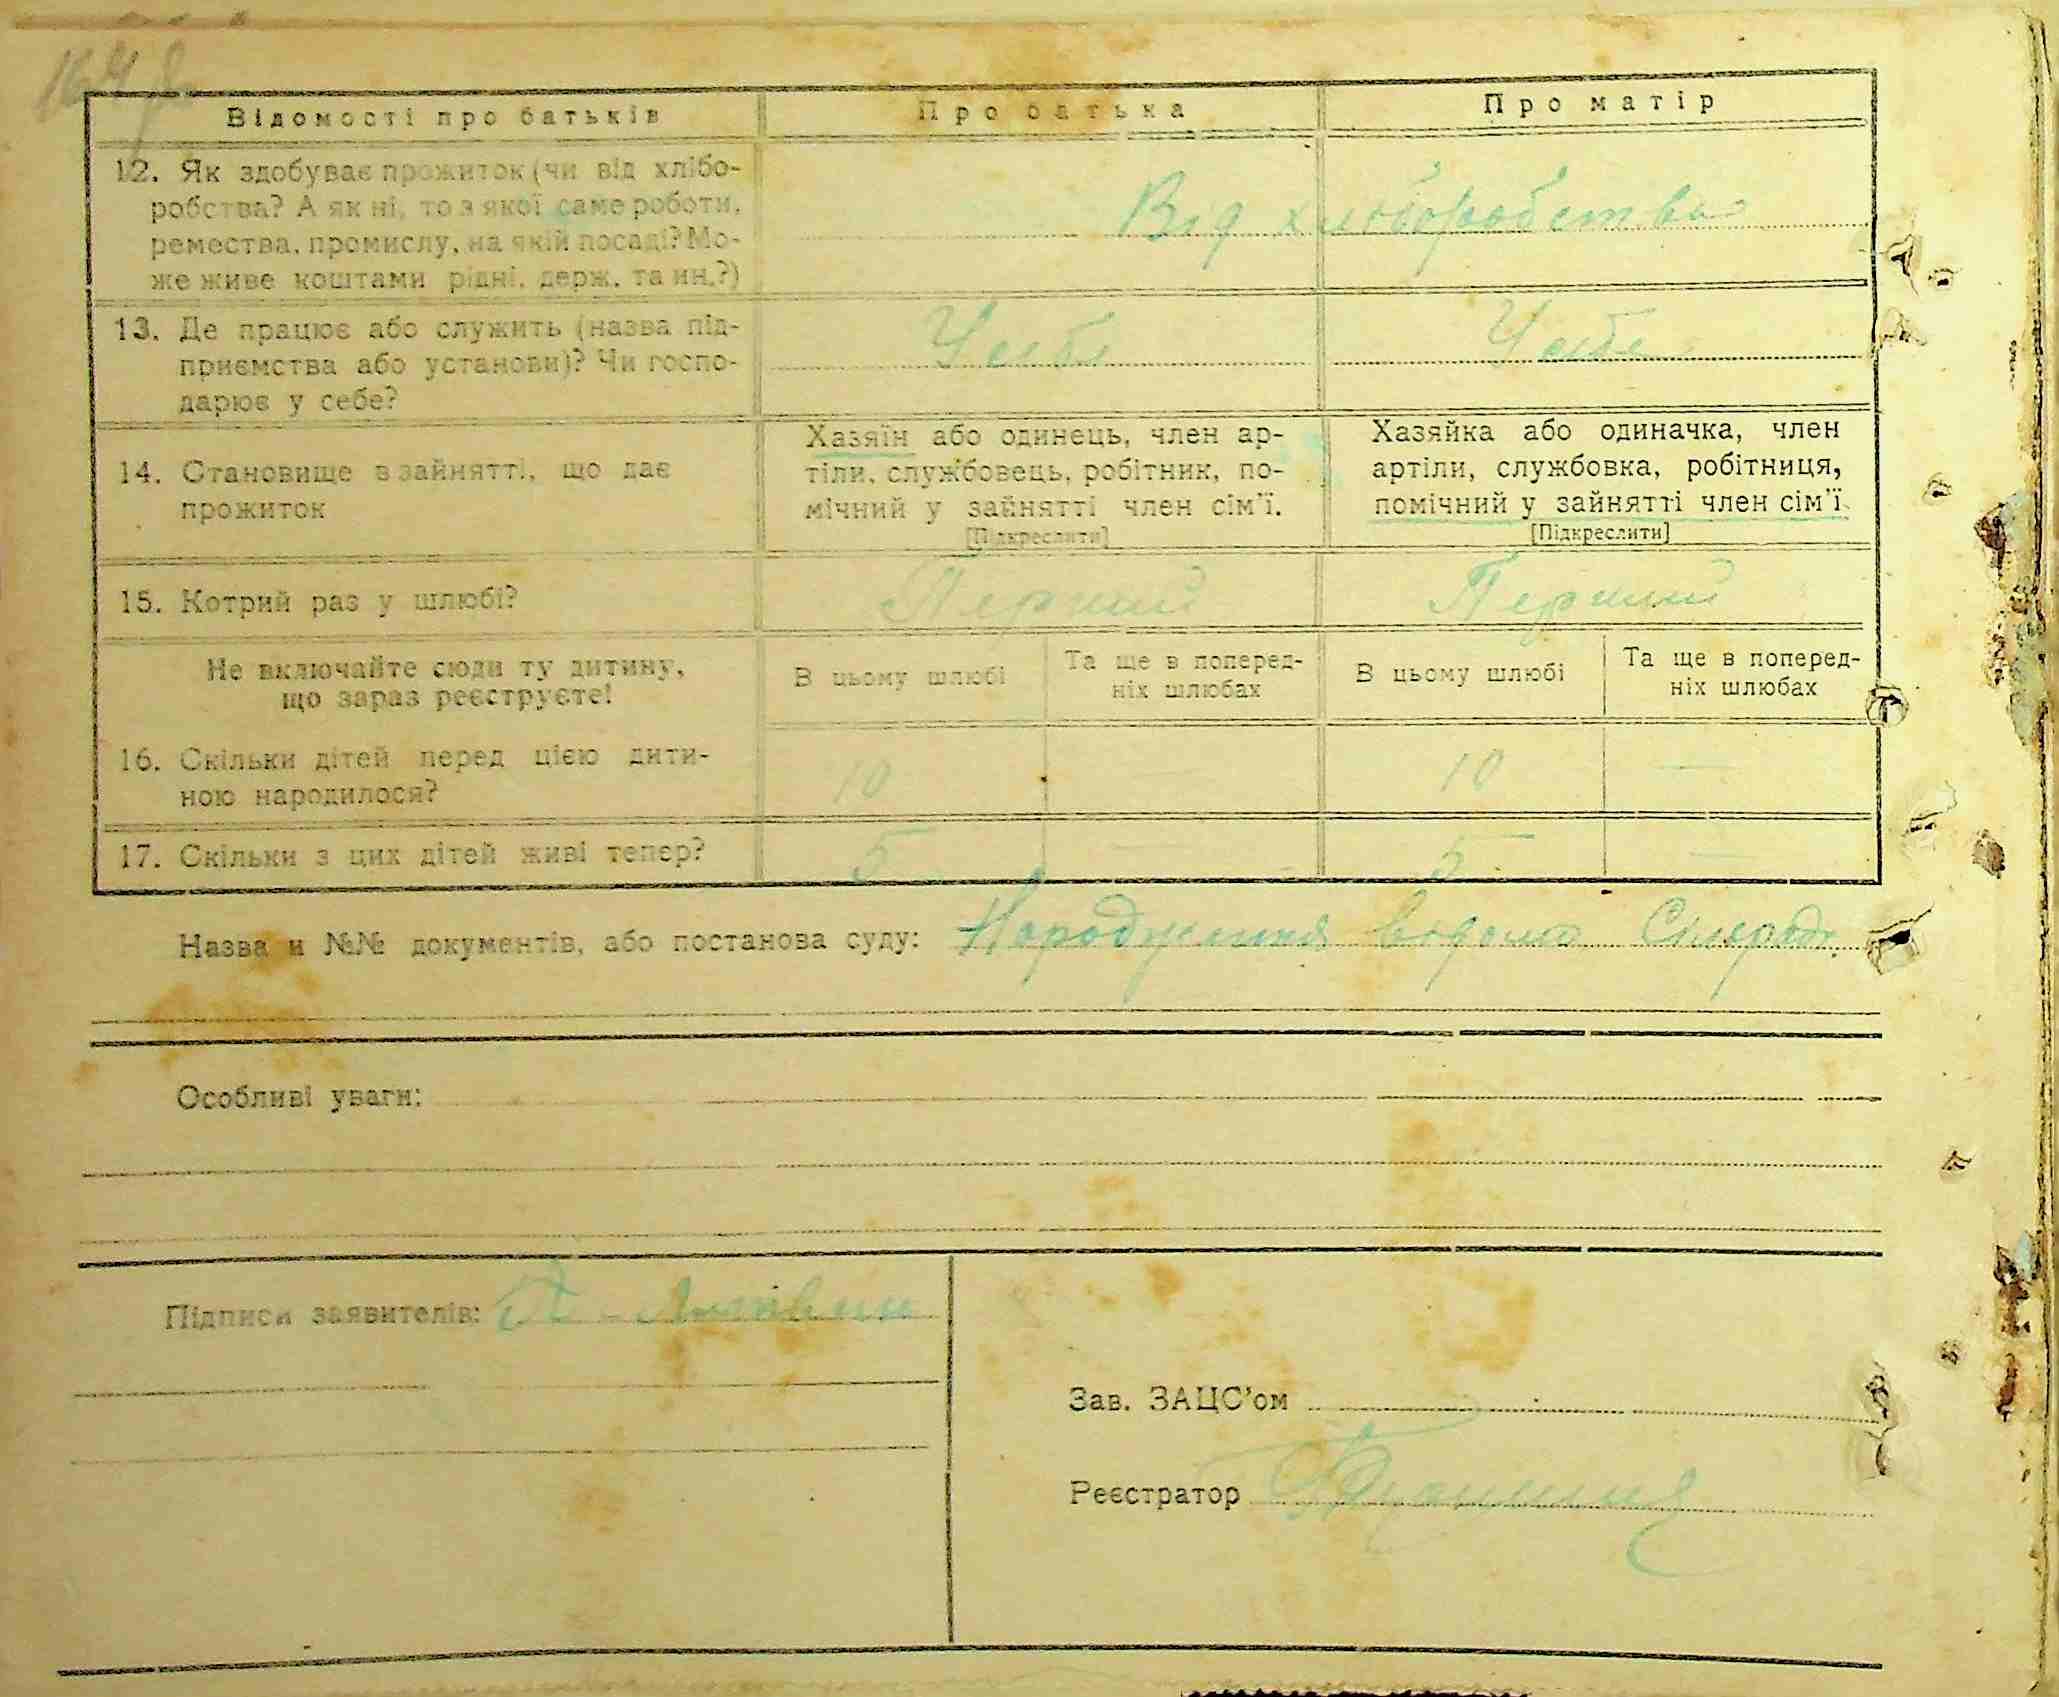 Відомості про батьків
Про батька
Про матір
12. Як здобуває прожиток (чи від хлібо-
робства? А як ні, то з якої саме роботи,
ремества, промислу, на якій посаді? Мо-
же живе коштами рідні, держ. та ин.?)
Від хліборобства
13. Де працює або служить (назва під-
приємства або установи)? Чи госпо-
дарює у себе?
У себе
У себе
14. Становище в зайнятті, що дає
прожиток
Хазяїн або одинець, член ар-
тіли, службовець, робітник, по-
мічний у зайнятті член сім'ї.
[Підкреслити]
Хазяйка або одиначка, член
артіли, службовка, робітниця,
помічний у зайнятті член сім'ї
[Підкреслити]
15. Котрий раз у шлюбі?
Перший
Перший
Не включайте сюди ту дитину,
що зараз реєструєте!
В цьому шлюбі
Та ще в поперед-
ніх шлюбах
В цьому шлюбі
Та ще в поперед-
ніх шлюбах
16. Скільки дітей перед цією дити-
ною народилося?
10
—
10
—
17. Скільки з цих дітей живі тепер?
5
—
5
—
Назва и №№ документів, або постанова суду: Народження відомо Сільраді
Особливі уваги:
Підписи заявителів:
Зав. ЗАЦС'ом
Реєстратор